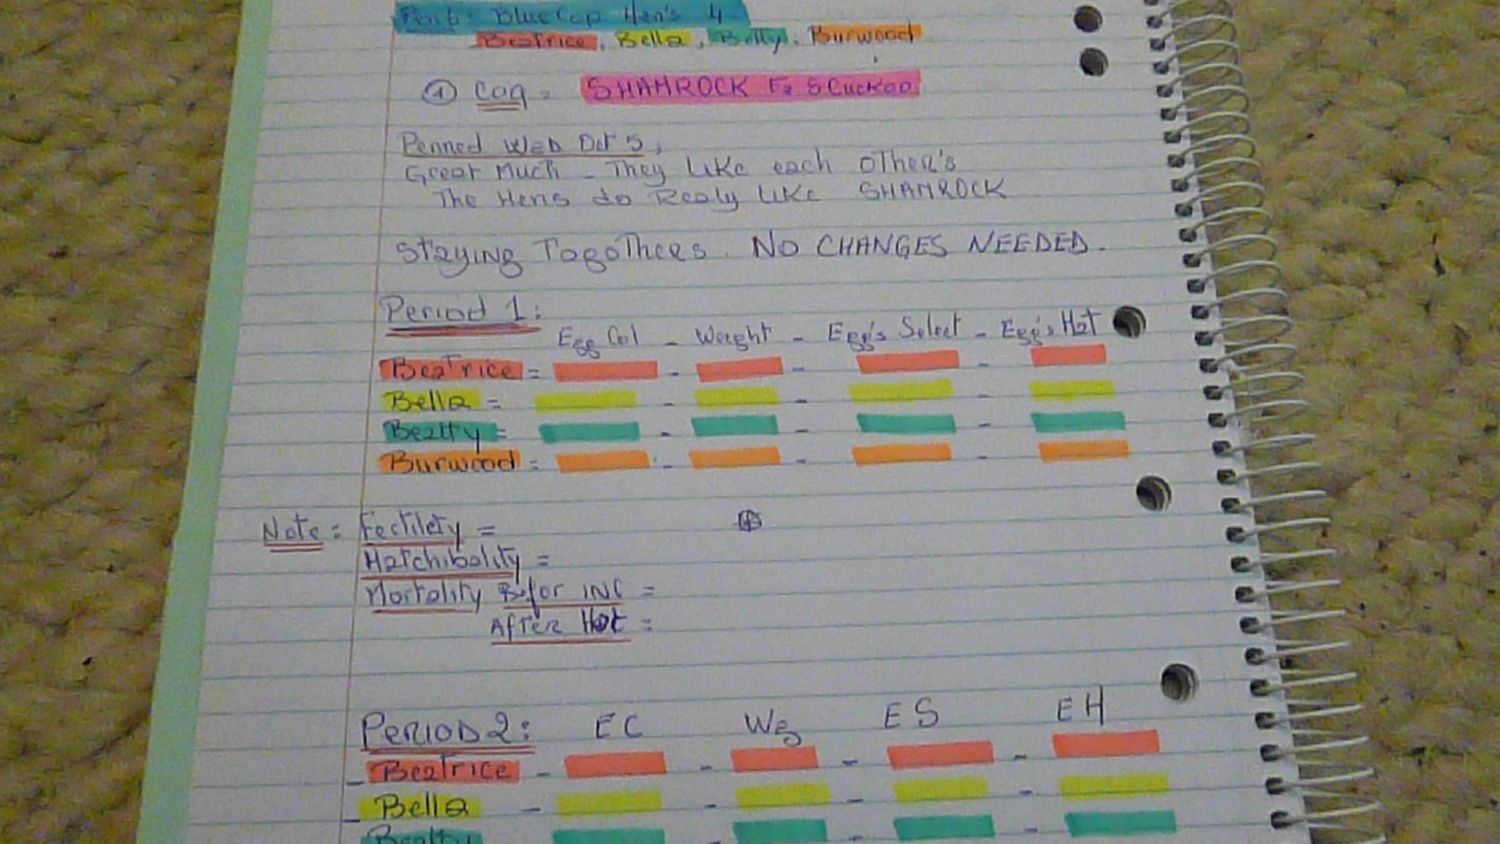 Blue Cap Hen's 4
Beatrice, Bella, Betty, Burwood
① Coq = SHAMROCK F2 SCuckoo
Penned WED Oct 5,
Great Much - They Like each oTher's
The Hens do Realy Like SHAMROCK
Staying TogoThers. NO CHANGES NEEDED.
Period 1:
Egg Col - Weight - Egg's Select - Egg's Hat
Beatrice = - - -
Bella = - - -
Beatty = - - -
Burwood = - - -
Note: Fertilety =
Hatchibality =
Mortality Befor INC =
After Hat =
PERIOD 2: EC Wg ES EH
- Beatrice - - - -
- Bella - - - -
Beatty - - -